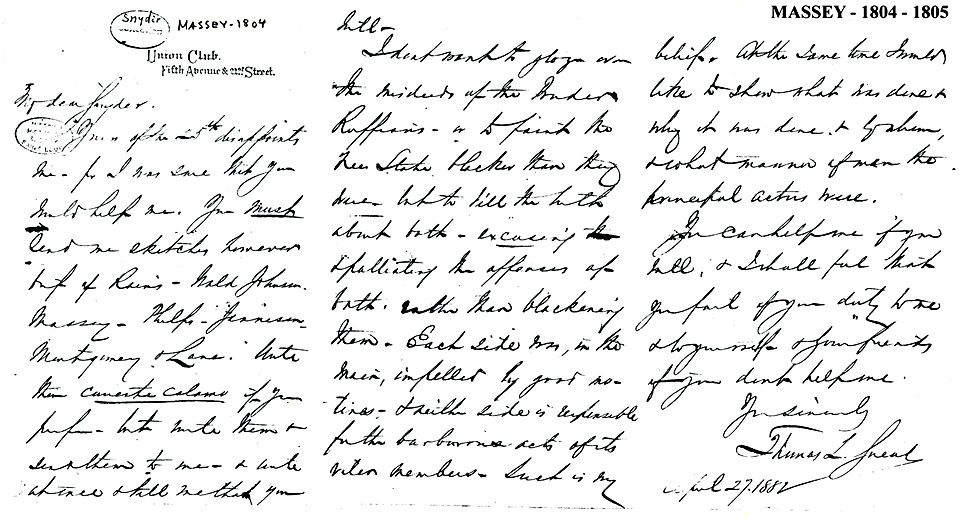 Snyder
MASSEY-1804
Union Club.
Fifth Avenue & 22nd Street.
My dear Snyder.
Yours of the 25th disappoints
me – for I was sure that you
would help me. You must
send me sketches however
brief of Rains – Wald Johnson.
Massey – Phelps – Jennison –
Montgomery & Lane. Write
them currente calamo if you
prefer – but write them &
send them to me – & write
at once & tell me that you
will –
I dont want to gloze over
the misdeeds of the Border
Ruffians – or to paint the
Free State blacker than they
were – but to tell the truth
about both – excusing
& palliating the offenses of
both. rather than blackening
them – Each side was, in the
main, impelled by good mo-
tives – & neither side is responsible
for the barbarous acts of its
viler members – Such is my
MASSEY - 1804 - 1805
belief. At the same time I would
like to show what was done &
why it was done. & by whom,
& what manner of men the
principal actors were.
You can help me if you
will, & I shall feel that
you fail of your duty to me
& to yourself – & your friends
if you dont help me.
Yrs sincerely
Thomas L. Snead
April 27. 1882